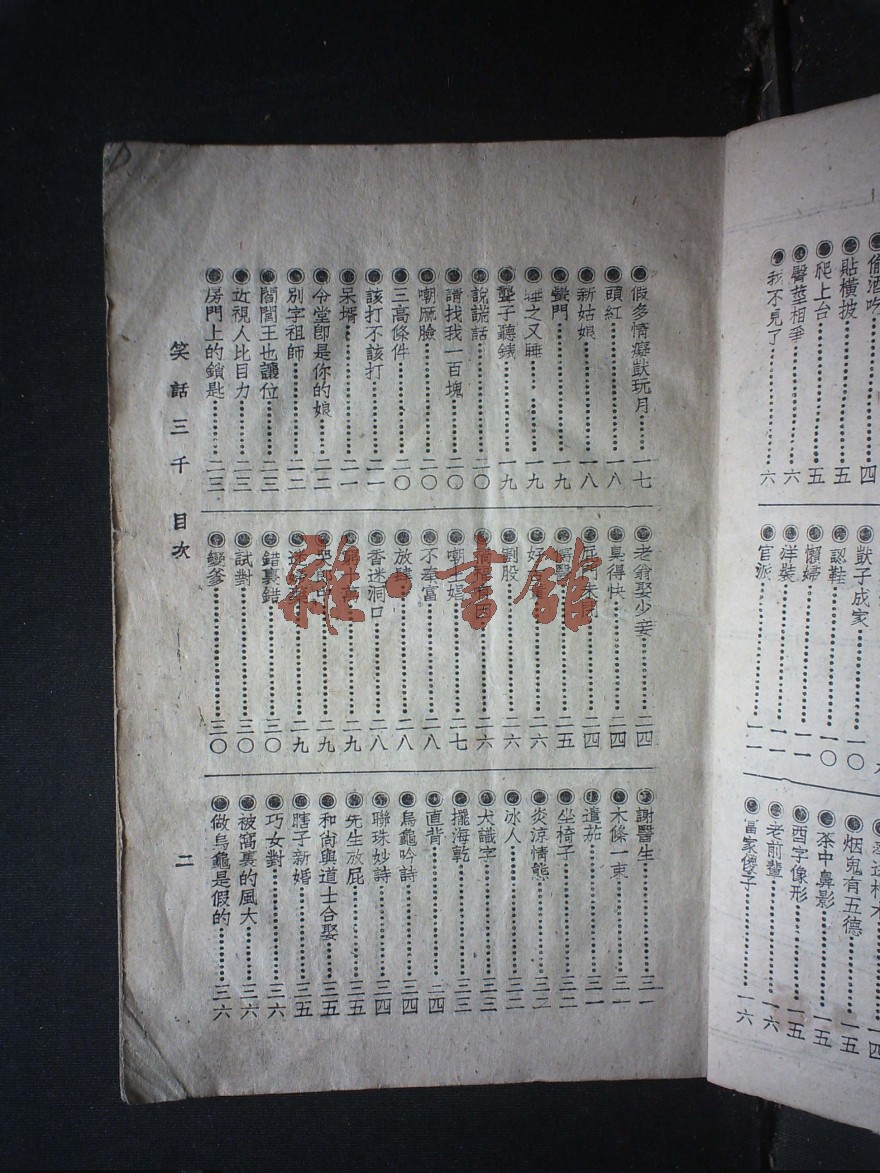 偷酒吃 四
貼橫披 五
爬上台 五
臀莖相爭 六
我不見了 六
獃子成家 一〇
認鞋 一〇
懶婦 一一
洋裝 一一
官派 一一
烟鬼有五德 一五
茶中鼻影 一五
酉字像形 一五
老前輩 一六
富家傻子 一六
假多情癡獃玩月 一七
頭紅 一八
新姑娘 一八
蠻門 一九
睡之又睡 一九
聾子聽錶 一九
說謊話 二〇
請找我一百塊 二〇
嘲厴臉 二〇
三高條件 二〇
該打不該打 二一
呆壻 二一
令堂卽是你的娘 二二
別字祖師 二二
閻闆王也讓位 二三
近視人比目力 二三
房門上的鎖匙 二三
老翁娶少妾 二四
臭得快 二四
二四
醫 二五
好 二六
割股 二六
二六
嘲土娼 二七
不奉富 二八
放肆 二八
香迷洞口 二八
二九
二九
二九
錯裏錯 三〇
試對 三〇
變爹 三〇
謝醫生 三一
木條一束 三一
遺茄 三一
坐椅子 三二
炎涼情態 三二
冰人 三二
犬識字 三三
擺海乾 三三
直背 三四
烏龜吟詩 三四
聯珠妙詩 三四
先生放屁 三五
和尙與道士合娶 三五
瞎子新婚 三五
巧女對 三六
被窩裏的風大 三六
做烏龜是假的 三六
笑話三千 目次 二
雜·書館